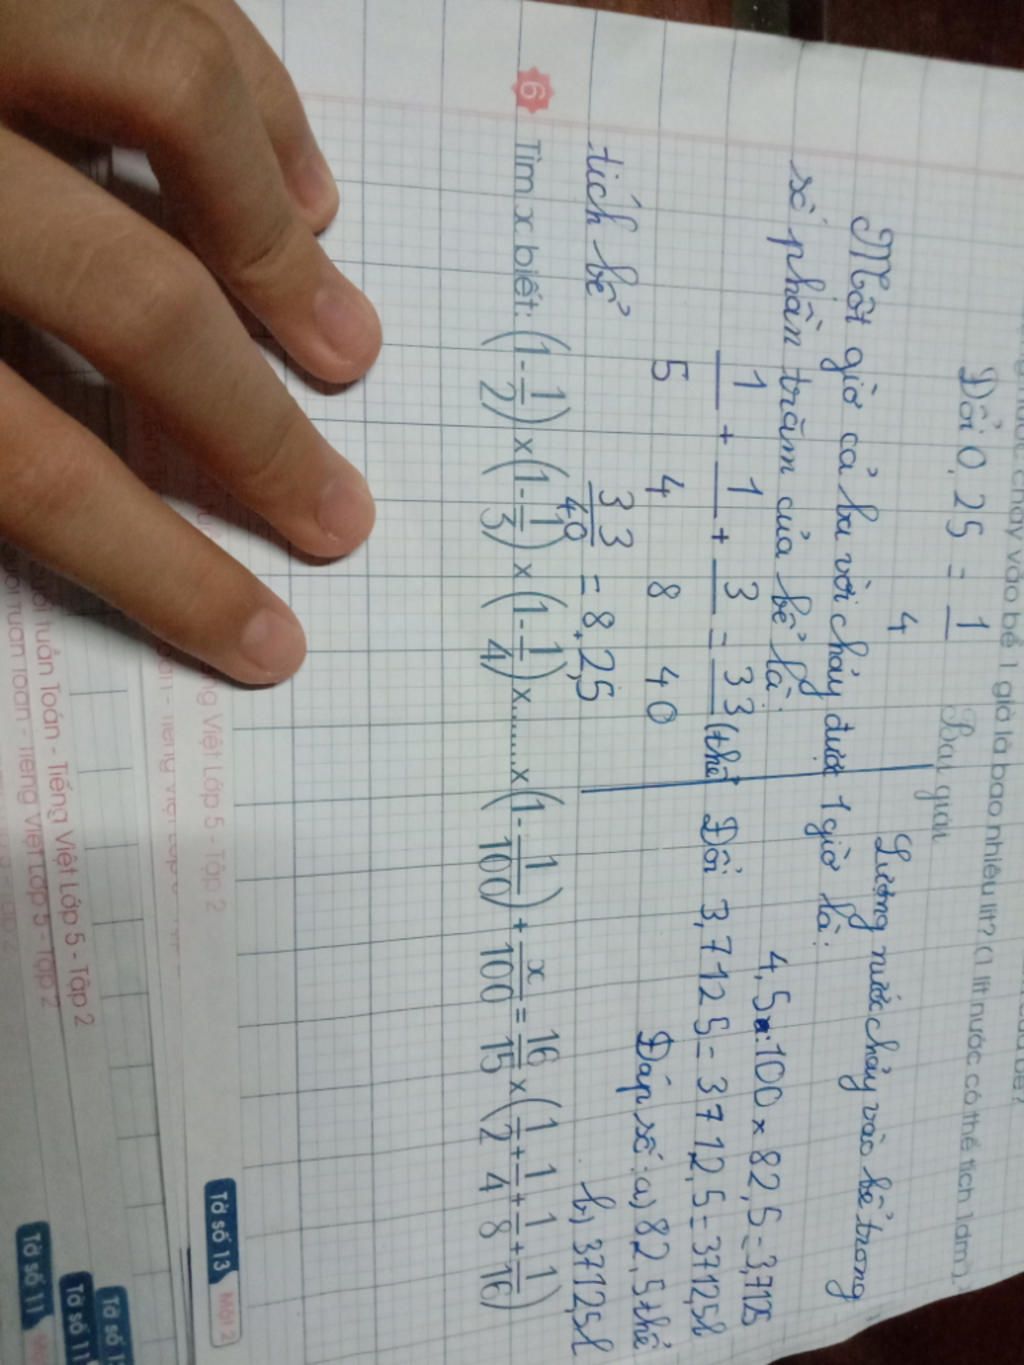 chảy vào bể 1 giờ là bao nhiêu lít? (1 lít nước có thể tích 1dm³)
Đổi 0,25 = 1/4
Bài giải
Một giờ cả ba vòi chảy được
số phần trăm của bể là:
1/5 + 1/4 + 3/8 = 33/40 (thể
tích bể
33/40 = 8,2,5
Lượng nước chảy vào bể trong
1 giờ là:
4,5 : 100 x 82,5 = 3,7125
Đổi 3,7125 = 3712,5 = 3712,5l
Đáp số: a) 82,5 thể
b) 3712,5l
6 Tìm x biết: (1 - 1/2) x (1 - 1/3) x (1 - 1/4) x.......x (1 - 1/100) + x/100 = 16/15 x (1/2 + 1/4 + 1/8 + 1/16)
Tờ số 13
ng Việt Lớp 5 - Tập 2
tuần Toán - Tiếng Việt Lớp 5 - Tập 2
Tờ số 11
Tờ số 11